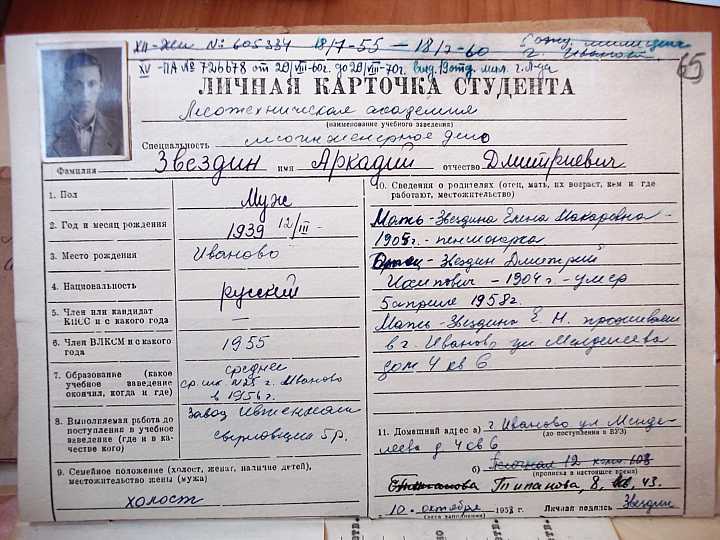 XII-ЖИ № 605334 18/7-55 — 18/7-60
г. Иваново
XV-ПА № 726678 от 29/VIII-60г. до 29/VIII-70г. выд. 19 отд. мил. г. Л-да
65
ЛИЧНАЯ КАРТОЧКА СТУДЕНТА
Лесотехническая академия
(наименование учебного заведения)
Специальность лесоинженерное дело
Фамилия Звездин имя Аркадий отчество Дмитриевич
1. Пол
Муж
2. Год и месяц рождения
1939 12/III-
3. Место рождения
Иваново
4. Национальность
русский
5. Член или кандидат
КПСС и с какого года
6. Член ВЛКСМ и с какого
года
1955
7. Образование (какое
учебное заведение
окончил, когда и где)
среднее
ср. шк. №25 г. Иваново
в 1956г.
8. Выполняемая работа до
поступления в учебное
заведение (где и в ка-
честве кого)
Завод
5 р.
9. Семейное положение (холост, женат, наличие детей),
местожительство жены (мужа)
холост
10. Сведения о родителях (отец, мать, их возраст, кем и где
работают, местожительство)
Мать - Звездина Елена Макаровна -
1905г. - пенсионерка
Отец - Звездин Дмитрий
1904г. - умер
5 апреля 1958г.
Мать - Звездина Е. М. проживает
в г. Иваново ул Менделеева
дом 4 кв 6
11. Домашний адрес а) г. Иваново ул Менде-
леева д 4 кв 6
(до поступления в ВУЗ)
б) 12 комн. 608
(прописка в настоящее время)
Типанова, 8, кв. 43.
10. октября 1958 г. Личная подпись Звездин
(дата заполнения)